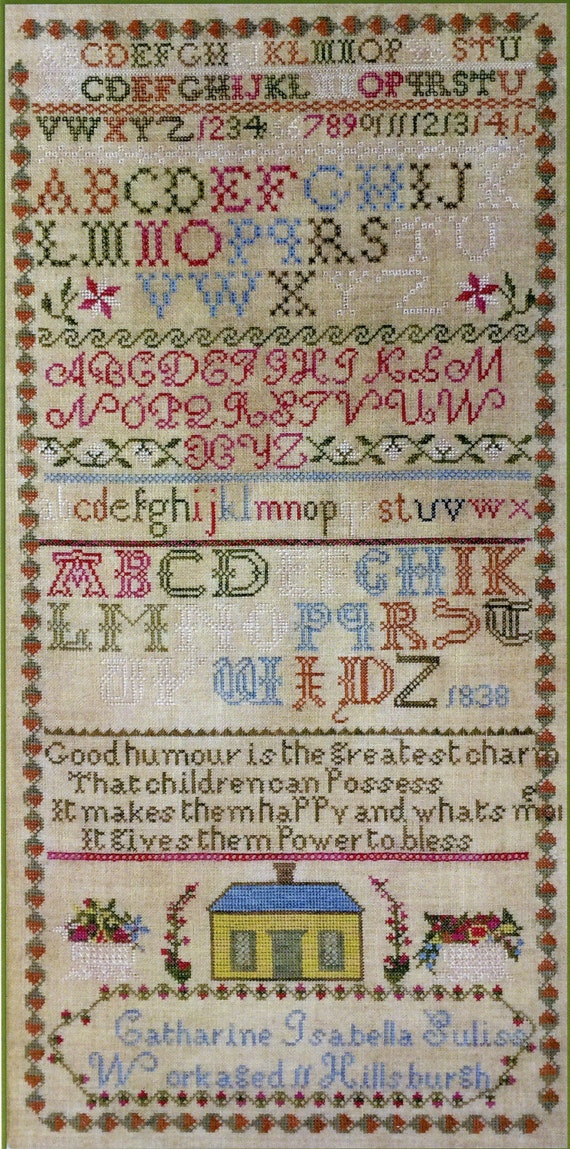 ABCDEFGHIJKLMNOPQRSTU
ABCDEFGHIJKLMNOPQRSTU
VWXYZ 123456789101112131415
ABCDEFGHIJK
LMNOPQRSTU
VWXYZ
ABCDEFGHIKLM
NOPQRSTVUW
XYZ
abcdefghijklmnopqrstuvwx
ABCDEFGHIK
LMNOPQRST
UVWXYZ 1838
Good humour is the greatest charm
That children can Possess
It makes them haPPy and whats more
It gives them Power to bless
Catharine Isabella
Work aged 11 Hillsburgh